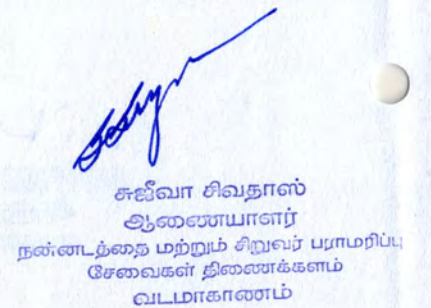 சுஜீவா சிவதாஸ்
ஆணையாளர்
நன்னடத்தை மற்றும் சிறுவர் பராமரிப்பு
சேவைகள் திணைக்களம்
வடமாகாணம்